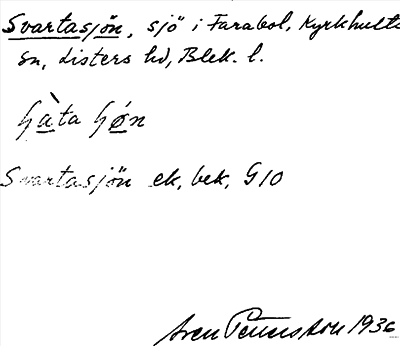 Svartasjön, sjö i Farabol, Kyrkhults
sn, Listers hd, Blek. l.
Svartasjön ek, bek, G10
Sven Pettersson 1936